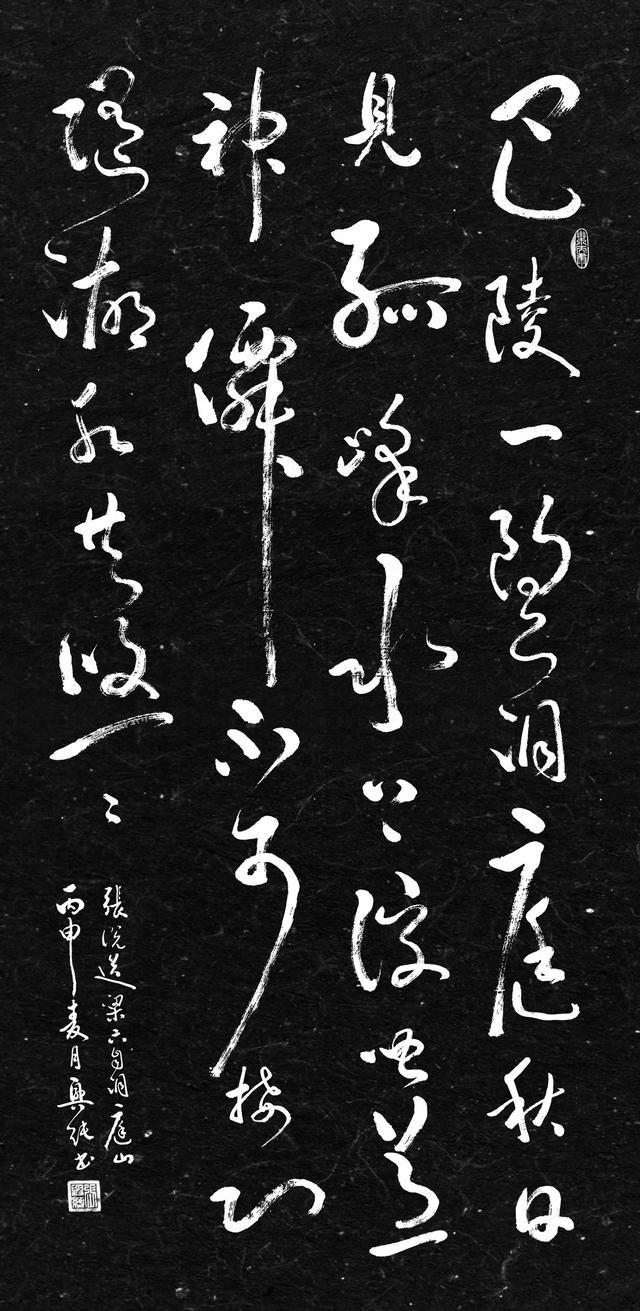 巴陵一望洞庭秋日
見孤峰水上浮聞道
神僊不可接心
隨湖水共悠〻
張說送梁六自洞庭山
丙申麦月興純书